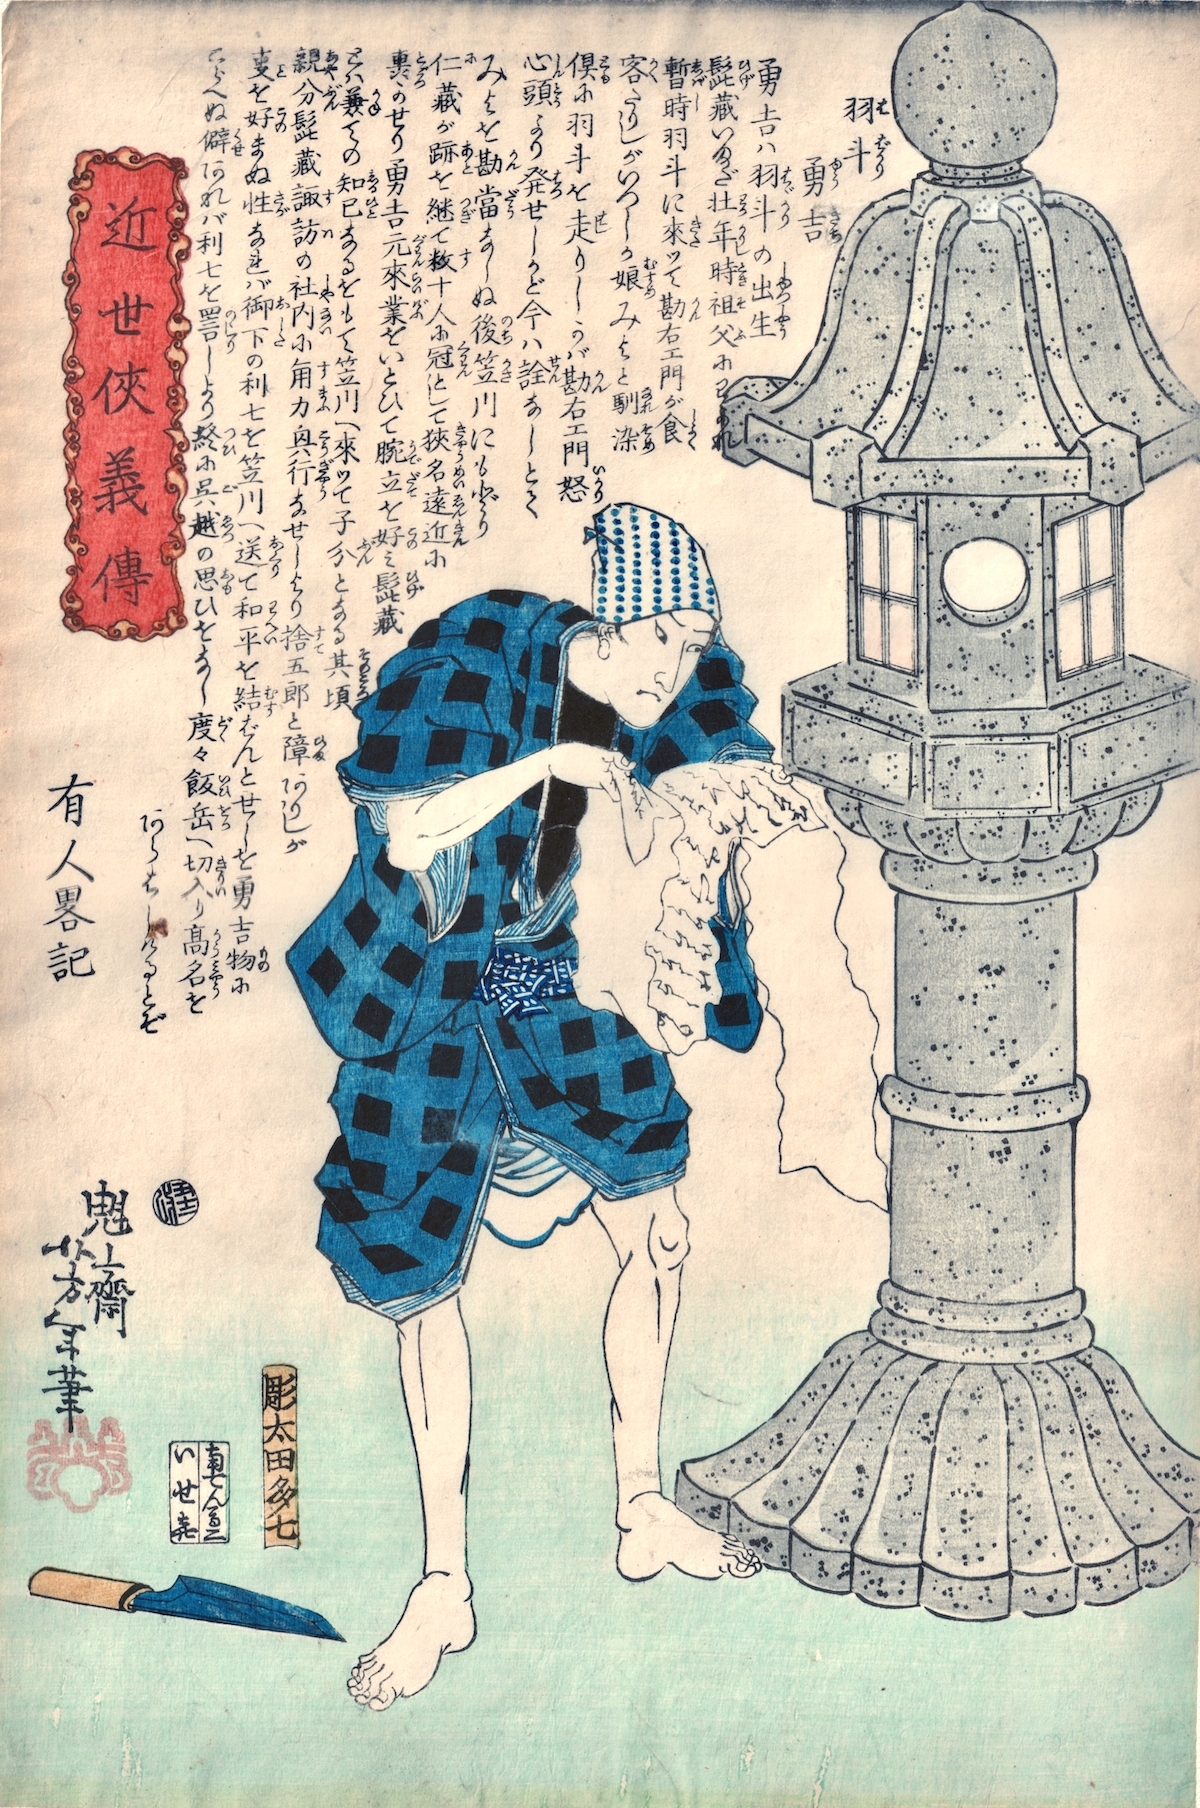 近世俠義傳
羽斗
勇吉
勇吉ハ羽斗の出生
髭藏いまだ壮年時祖父に
暫時羽斗に來ツて勘右エ門が食
客たりしがいつしか娘みよと馴染
倶に羽斗を走りしかバ勘右エ門怒
心頭より発せしかど今ハ詮なしとて
みよを勘當なしぬ後笠川にもどり
仁藏が跡を継て数十人に冠として狹名遠近に
轟かせり勇吉元來業をいとひて腕立を好ミ髭藏
とハ兼ての知己なるをもて笠川へ來ツて子分となる其頃
親分髭藏諏訪の社内に角力興行なせしより捨五郎と障ありしが
変を好まぬ性なれバ御下の利七を笠川へ送て和平を結ばんとせしを勇吉物に
こらへぬ僻あれバ利七を罵しより終に呉越の思ひをなし度々飯岳へ切入り高名を
あらはしけるとぞ
有人畧記
魁斎芳年筆
彫太田多七
いせ㐂